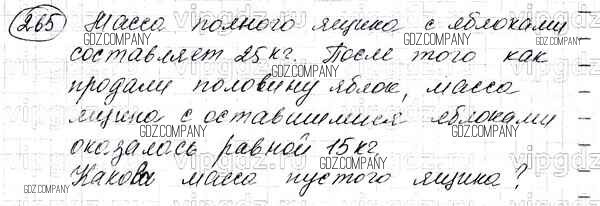 265 Масса полного ящика с яблоками
GDZ.COMPANY GDZ.COMPANY GDZ.COMPANY
составляет 25 кг. После того как
продали половину яблок, масса
GDZ.COMPANY GDZ.COMPANY GDZ.COMPANY
ящика с оставшимися яблоками
оказалась равной 15 кг
GDZ.COMPANY GDZ.COMPANY GDZ.COMPANY
Какова масса пустого ящика?
GDZ.COMPANY GDZ.COMPANY GDZ.COMPANY